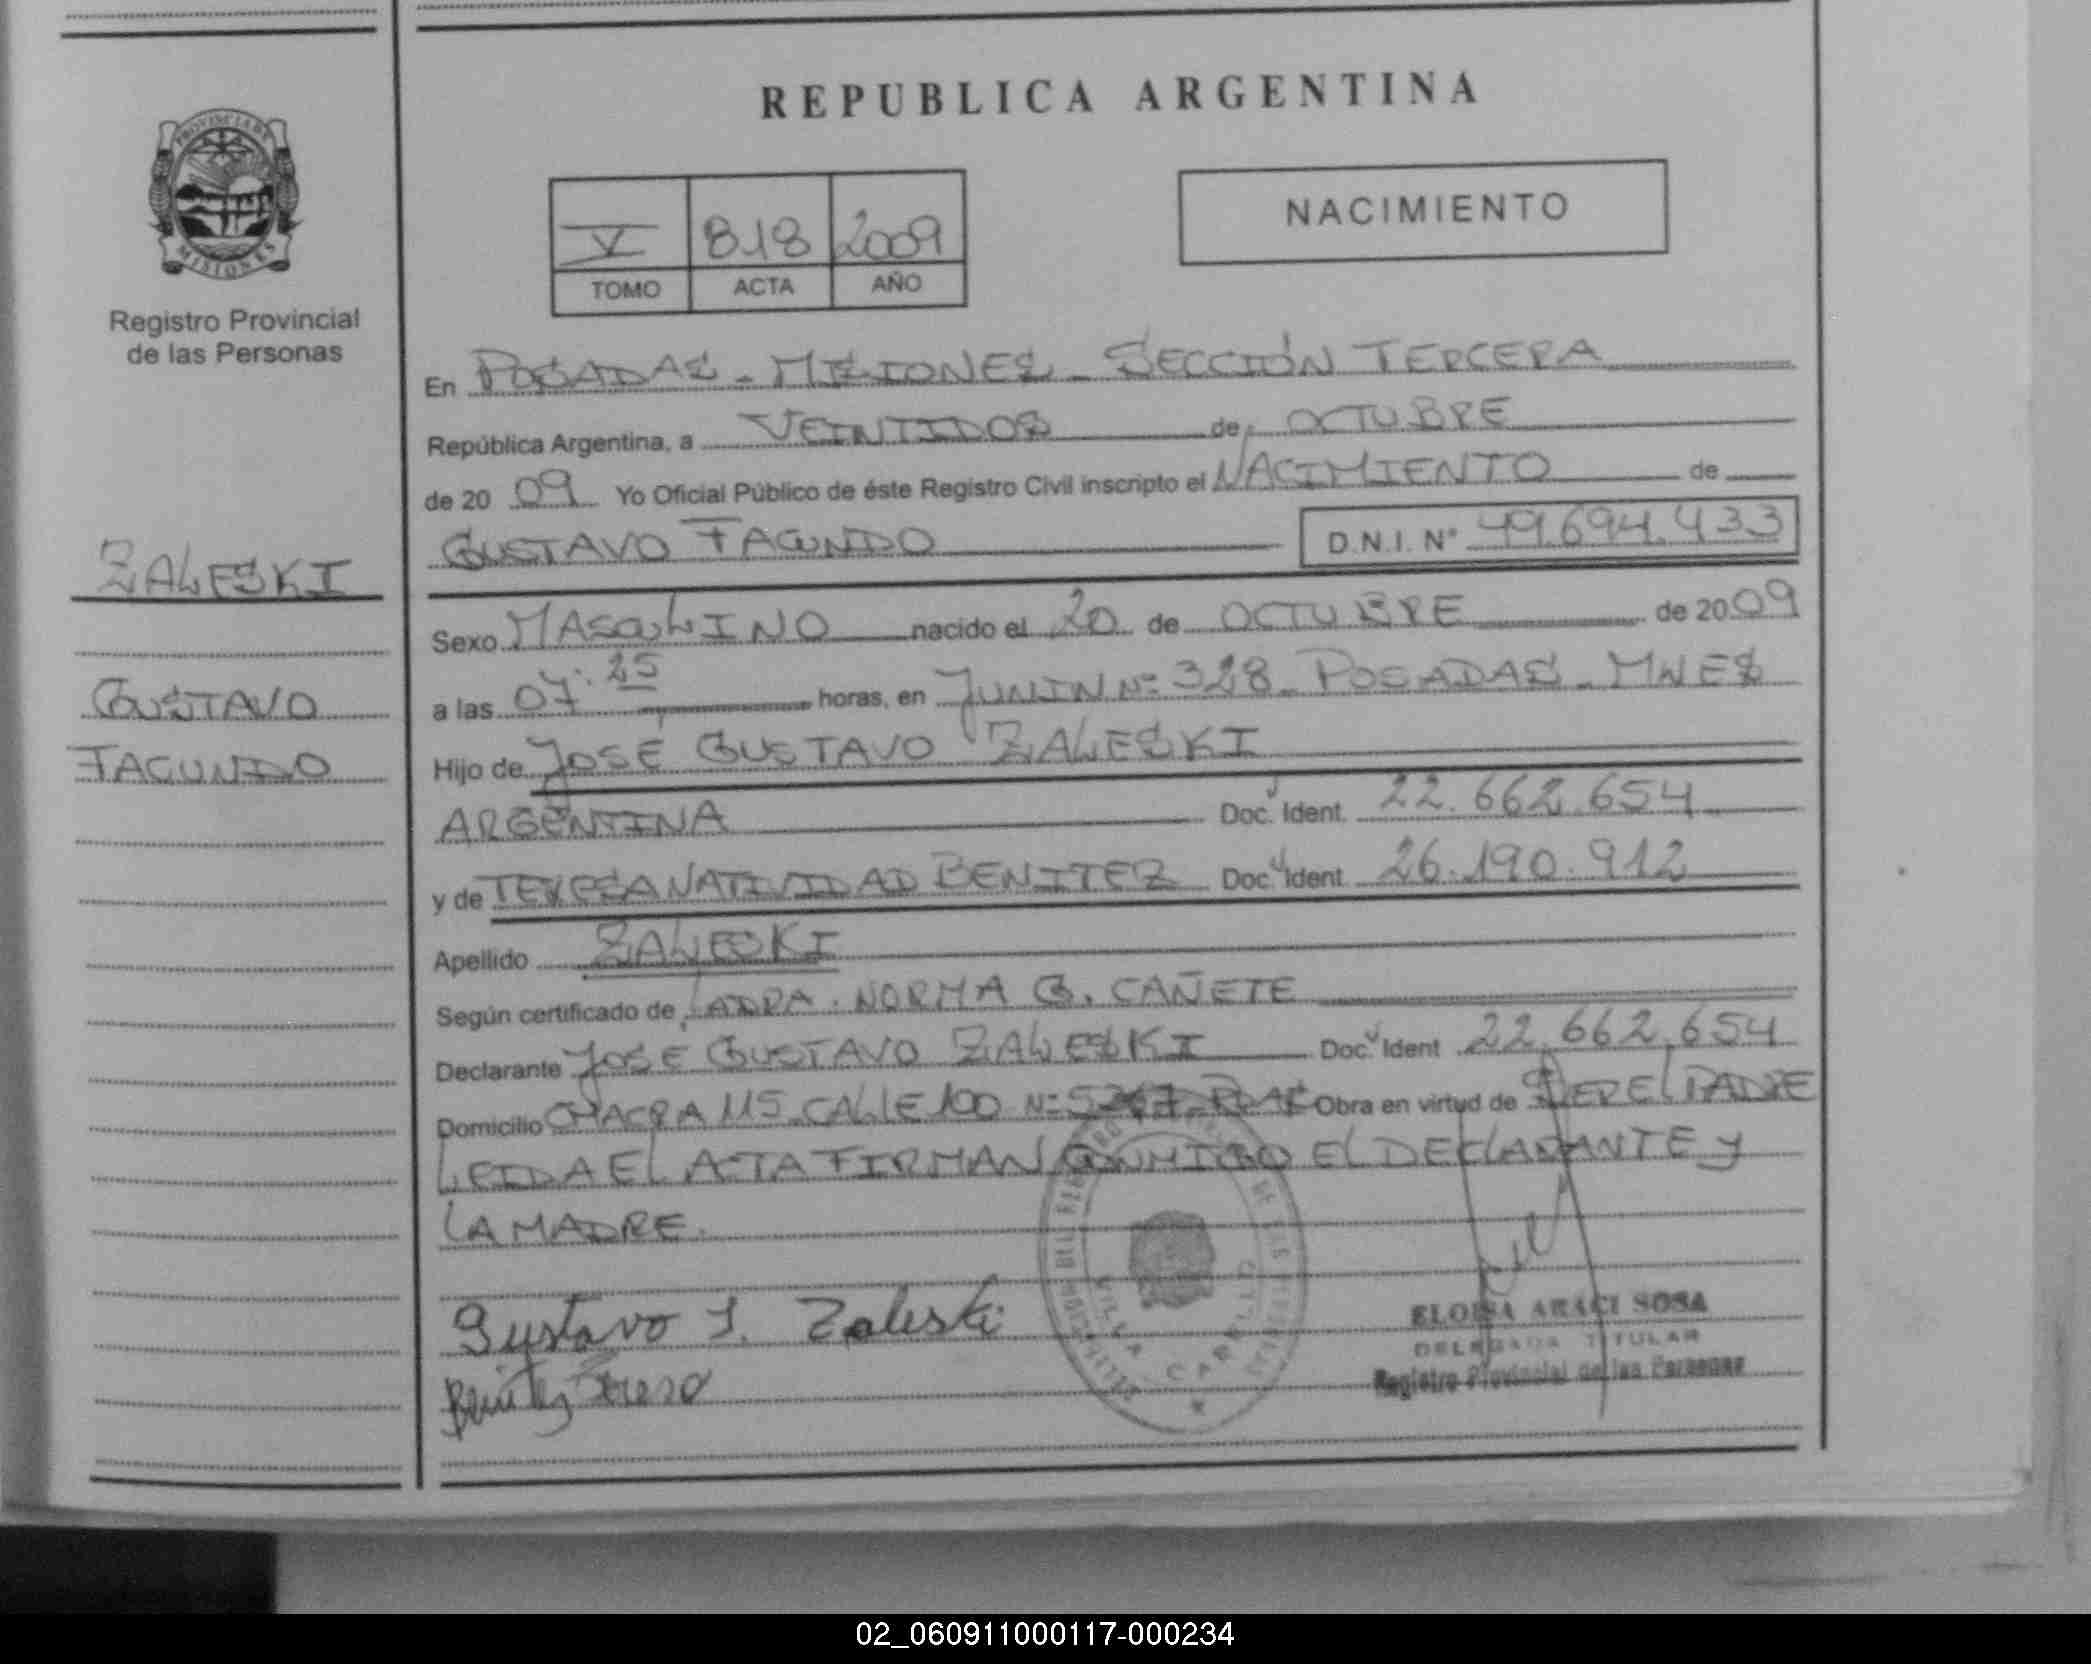 REPUBLICA ARGENTINA
PROVINCIA DE
MISIONES
Registro Provincial
de las Personas
V 818 2009
TOMO ACTA AÑO
NACIMIENTO
En POSADAS - MISIONES - SECCIÓN TERCERA
República Argentina, a VEINTIDOS de OCTUBRE
de 20 09 Yo Oficial Público de éste Registro Civil inscripto el NACIMIENTO de
GUSTAVO FACUNDO D.N.I. N° 49.694.433
ZALESKI
GUSTAVO
FACUNDO
Sexo MASCULINO nacido el 20 de OCTUBRE de 2009
a las 07:25 horas, en JUNIN Nº 328 - POSADAS - MNES
Hijo de JOSÉ GUSTAVO ZALESKI
ARGENTINA Doc. Ident. 22.662.654
y de TERESA NATIVIDAD BENITEZ Doc. Ident. 26.190.912
Apellido ZALESKI
Según certificado de LA DRA. NORMA G. CAÑETE
Declarante JOSE GUSTAVO ZALESKI Doc. Ident 22.662.654
Domicilio CHACRA 115 CALLE 100 Nº Obra en virtud de SER EL PADRE
LEIDA EL ACTA FIRMAN CONMIGO EL DECLARANTE Y
LA MADRE.
Gustavo J. Zaleski
Benitez Teresa
VILLA CABELLO
ELOISA ARACI SOSA
DELEGADA TITULAR
Registro Provincial de las Personas
02_060911000117-000234